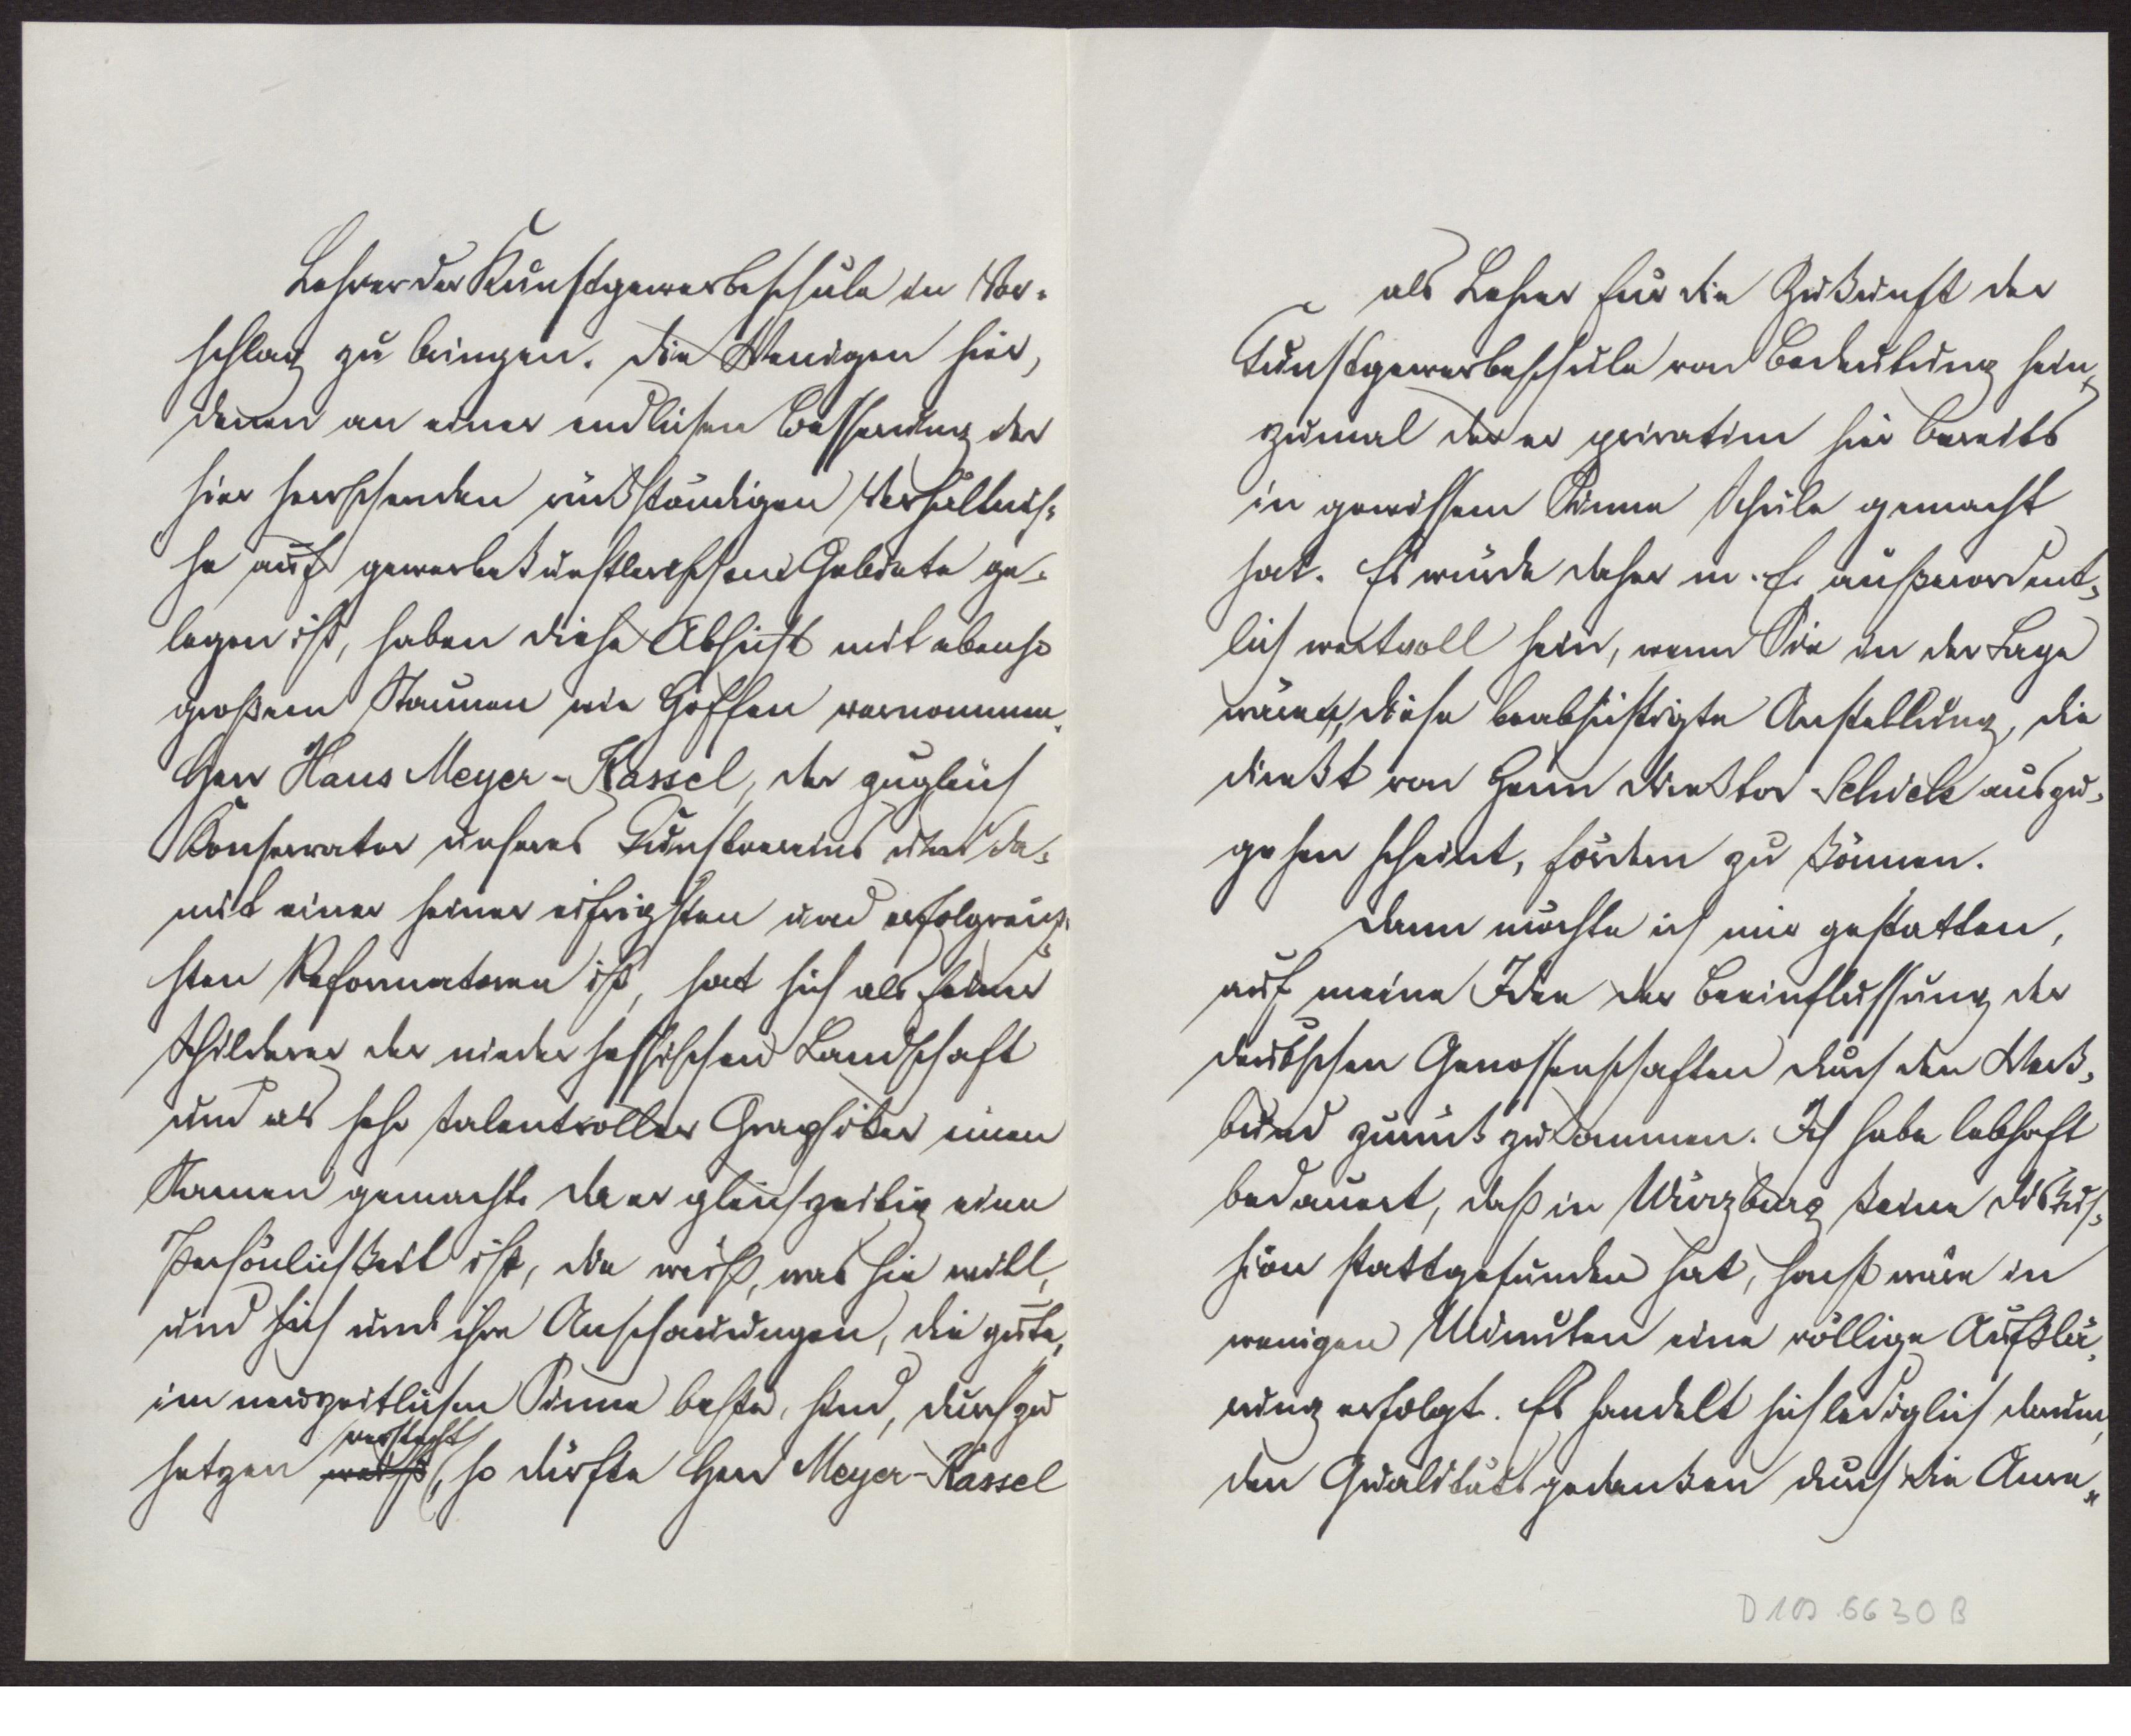 Lehrer der Kunstgewerbeschule in Vor-
schlag zu bringen. Die Wenigen hier,
denen an einer endlichen Besserung der
hier herrschenden rückständigen Verhältnis-
se auf gewerbekünstlerischem Gebiete ge-
legen ist, haben diese Absicht mit ebenso
großem Staunen wie Hoffen vernommen.
Herr Hans Meyer-Kassel, der zugleich
Konservator unseres Kunstvereins und da-
mit einer seiner eifrigsten und erfolgreich-
sten Reformatoren ist, hat sich als feiner
Schilderer der niederhessischen Landschaft
und als sehr talentvoller Graphiker einen
Namen gemacht. Da er gleichzeitig eine
Persönlichkeit ist, die weiß, was sie will,
und sich und ihre Anschauungen, die gute,
im neuzeitlichen Sinne beste, sind, durchzu
setzen versteht, so dürfte Herr Meyer-Kassel
als Lehrer für die Zukunft der
Kunstgewerbeschule von Bedeutung sein,
zumal der er privatim hier bereits
in gewissem Sinne Schule gemacht
hat. Es würde daher m. E. außerordent-
lich wertvoll sein, wenn Sie in der Lage
wären, diese beabsichtigte Anstellung, die
direkt von Herrn Direktor Schick auszu-
gehen scheint, fördern zu können.
Dann möchte ich mir gestatten,
auf meine Idee der Beeinflussung der
deutschen Genossenschaften durch den Werk-
bund zurück zu kommen. Ich habe lebhaft
bedauert, daß in Würzburg keine Diskus-
sion stattgefunden hat, sonst wäre in
wenigen Minuten eine völlige Aufklä-
rung erfolgt. Es handelt sich lediglich darum,
den Qualitätsgedanken durch die Anre-
D 109 6630 B